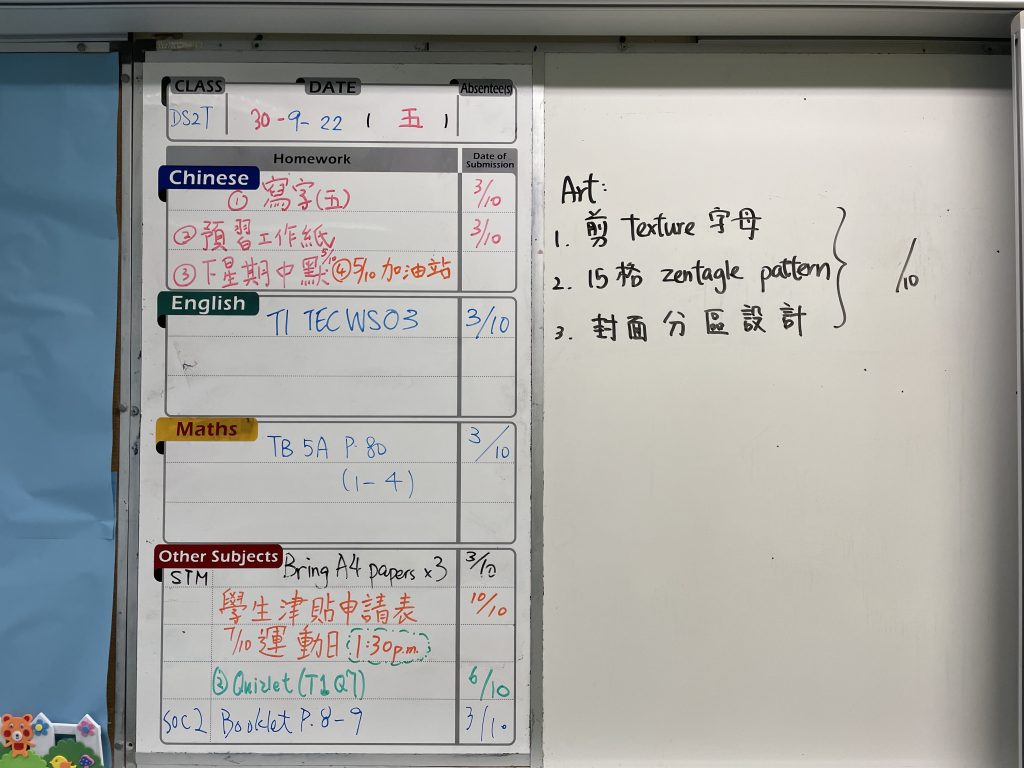 CLASS DATE Absentee(s)
DS2T 30-9-22 (五)
Homework Date of Submission
Chinese
① 寫字(五) 3/10
② 預習工作紙 3/10
③ 下星期中默 5/10 ④ 5/10 加油站
English
T1 TEC WS03 3/10
Maths
TB 5A P.80 3/10
(1-4)
Other Subjects
STM Bring A4 papers x3 3/10
學生津貼申請表 10/10
7/10 運動日 1:30p.m.
② Quizlet (T1 Q7) 6/10
SOC 2 Booklet P.8-9 3/10
Art:
1. 剪 Texture 字母
2. 15格 zentagle pattern
3. 封面分區設計
/10